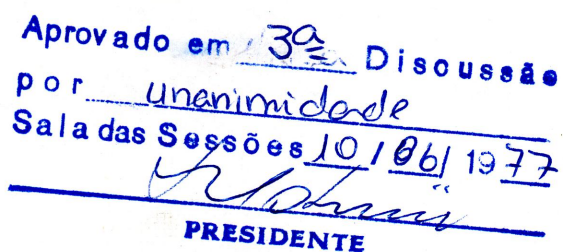 Aprovado em 3ª Discussão
por unanimidade
Sala das Sessões 10/06/1977
PRESIDENTE